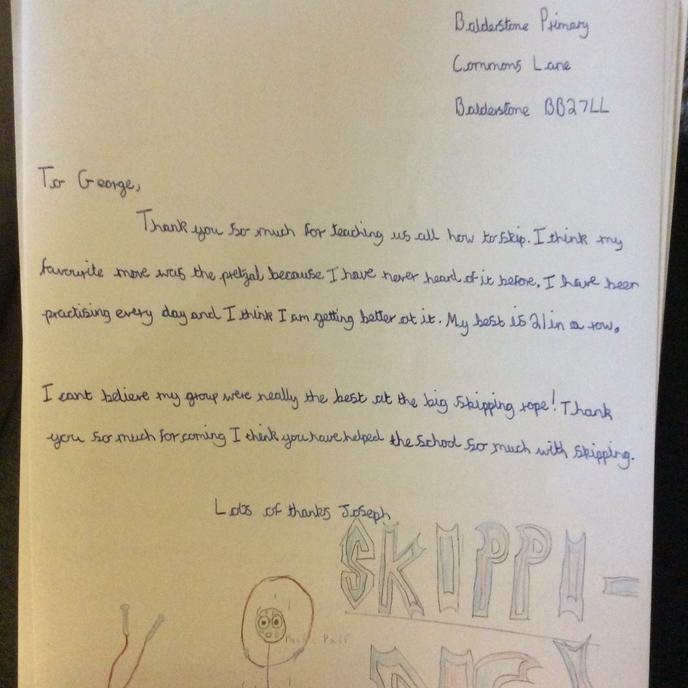 Balderstone Primary
Commons Lane
Balderstone BB27LL
To George,
Thank you so much for teaching us all how to skip. I think my
favourite move was the pretzal because I have never heard of it before. I have been
practising every day and I think I am getting better at it. My best is 21 in a row.
I cant believe my group were neally the best at the big skipping rope! Thank
you so much for coming I think you have helped the school so much with skipping.
Lots of thanks Joseph
SKIPPI-
NG!
Puff Puff